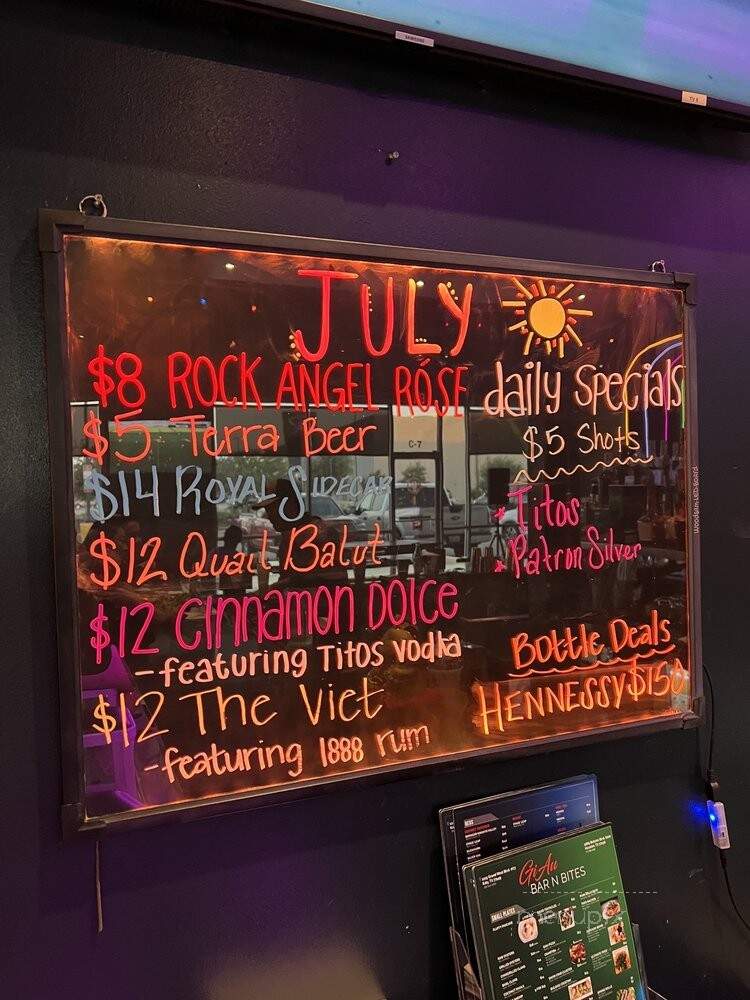 SAMSUNG
TV 8
JULY
$8 ROCK ANGEL RÓSE
$5 Terra Beer
$14 ROYAL SIDECAR
$12 Quail Balut
$12 CINNAMON DOLCE
-featuring Titos vodka
$12 The Viet
-featuring 1888 rum
daily specials
$5 Shots
* Titos
* Patron Silver
Bottle Deals
HENNESSY $150
C-7
Woodsam LED Board
GiAu
BAR N BITES
SMALL PLATES